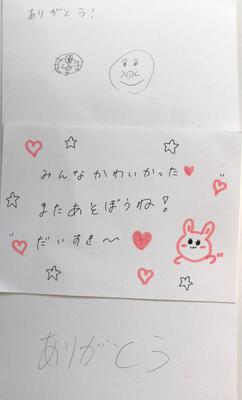 ありがとう!
みんなかわいかった
またあそぼうね!
だいすき〜
ありがとう